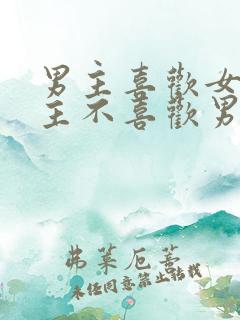 男主喜歡女
主不喜歡男
弗莱厄薏
未經同意禁止轉載